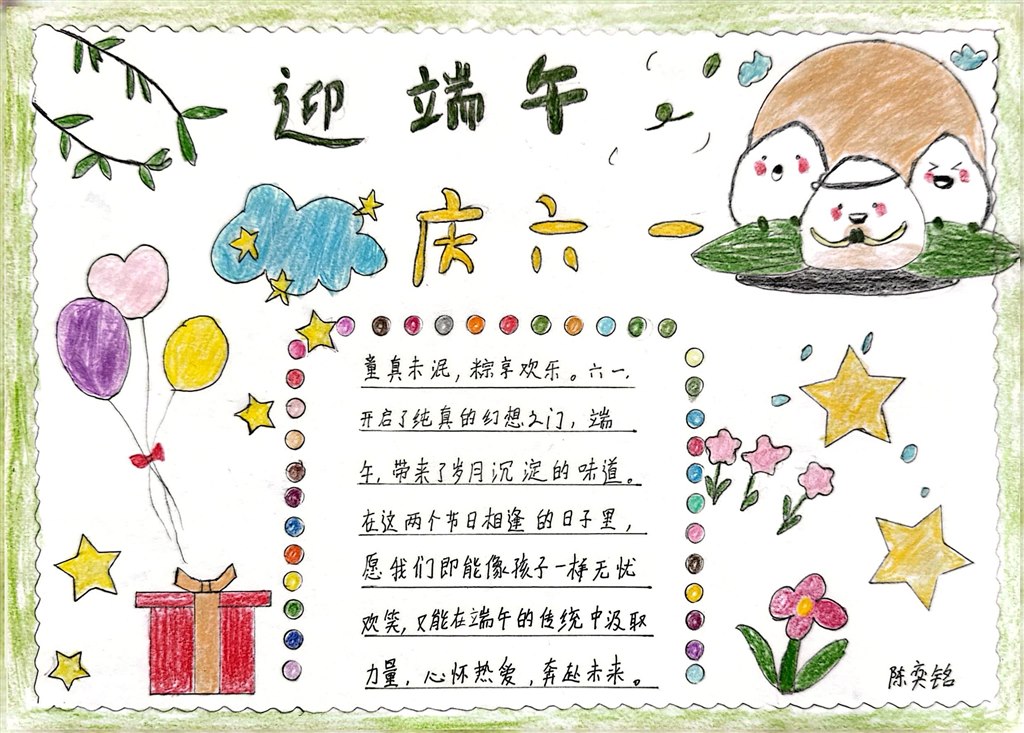 迎端午
庆六一
童真未泯，粽享欢乐。六一，
开启了纯真的幻想之门，端
午，带来了岁月沉淀的味道。
在这两个节日相逢的日子里，
愿我们即能像孩子一样无忧
欢笑，又能在端午的传统中汲取
力量，心怀热爱，奔赴未来。
陈奕铭